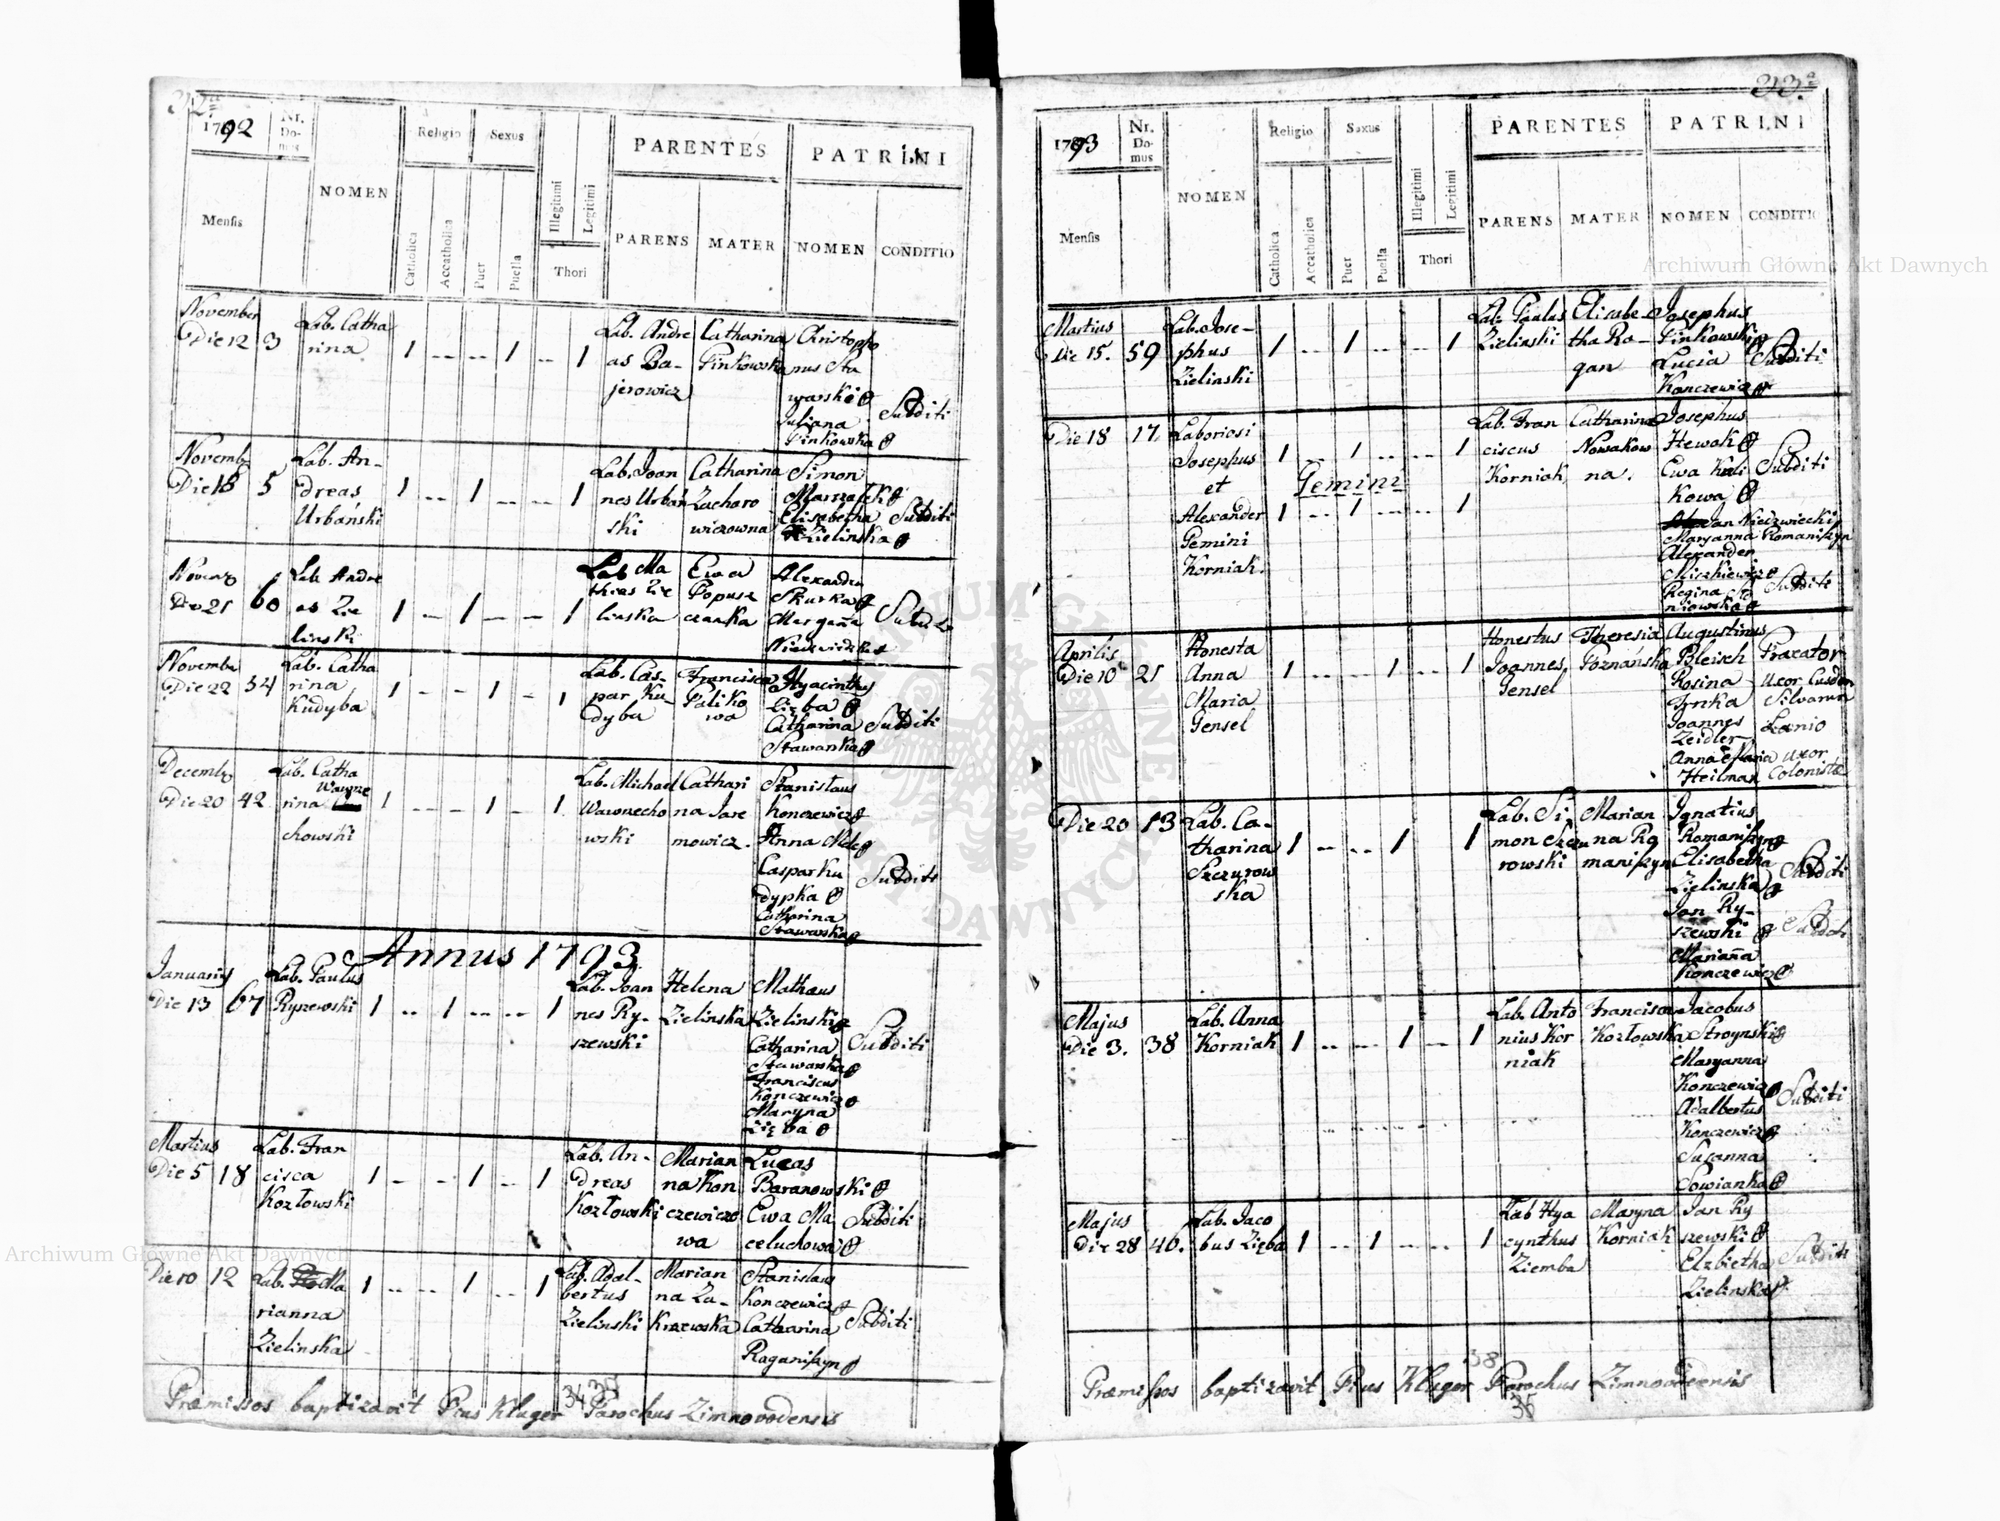 32.a
1792
Nr.
Do-
mus
NOMEN
Religio
Sexus
Illegitimi
Legitimi
PARENTES
PATRINI
Mensis
Catholica
Accatholica
Puer
Puella
Thori
PARENS
MATER
NOMEN
CONDITIO
November
Die 12 3 Lab. Catha
rina
1 -- -- 1 -- 1
Lab. Andre
as Ba-
jerowicz
Catharina
Ginkowska
Christopho
rus Sta
warski
Juliana
Ginkowska
Subditi
Novemb
Die 18 5 Lab. An-
dreas
Urbański
1 -- 1 -- -- 1
Lab. Joan
nes Urbań
ski
Catharina
Zacharo
wiczowna
Simon
Marszałek
Elisabetha
Zielinska
Subditi
Novemb
Die 21 60 Lab. Andre
as Zie
linski
1 -- 1 -- -- 1
Lab Ma
thias Zie
linska
Ewa
Popusz
czanka
Alexander
Skurka
Maryana
Subditi
Novemb
Die 22 54 Lab. Catha
rina
Kudyba
1 -- -- 1 - 1
Lab. Cas-
par Ku
dyba
Francisca
Paliko
wa
Hyacinthus
Zięba
Catharina
Stawarska
Subditi
Decemb
Die 20 42 Lab. Catha
rina Wawrze
chowski
1 -- -- 1 -- 1
Lab. Michael
Wawrzecho
wski
Cathari
na Jare
mowicz.
Stanislaus
Konczewicz
Anna
Caspar Ku
dypka
Catharina
Stawarska
Subditi
Annus 1793
Januarij
Die 13 67 Lab. Paulus
Ryszewski
1 -- 1 -- -- 1
Lab. Joan
nes Ry-
szewski
Helena
Zielinska
Mathaus
Zielinski
Catharina
Stawarska
Franciscus
Konczewicz
Maryna
Zięba
Subditi
Martius
Die 5 18 Lab. Fran
cisca
Kozłowski
1 -- -- 1 -- 1
Lab. An-
dreas
Kozłowski
Marian
na Kon
czewiczo
wa
Lucas
Baranowski
Ewa Ma
celuchowa
Subditi
Die 10 12 Lab. Ma
rianna
Zielinska
1 -- -- 1 -- 1
Lab. Adal-
bertus
Zielinski
Marian
na Za-
krzewska
Stanislaus
Konczewicz
Catharina
Roganiszyn
Subditi
Præmissos baptizavit Pius Kluger Parochus Zimnovodensis
33.a
1793
Nr.
Do-
mus
NOMEN
Religio
Sexus
Illegitimi
Legitimi
PARENTES
PATRINI
Mensis
Catholica
Accatholica
Puer
Puella
Thori
PARENS
MATER
NOMEN
CONDITIO
Martius
Die 15. 59 Lab. Jose-
phus
Zielinski
1 -- 1 -- -- 1
Lab. Paulus
Zielinski
Elisabe-
tha Ro-
gan
Josephus
Ginkowski
Lucia
Konczewicz
Subditi
Die 18 17. Laboriosi
Josephus
et
Alexander
Gemini
Korniak.
1 -- 1 -- -- 1
Gemini
1 -- 1 -- -- 1
Lab. Fran
ciscus
Korniak
Catharina
Nowakow
na.
Josephus
Hewak
Ewa Kuli
kowa
Subditi
Jan Niedzwiecki
Maryanna Romaniszyn
Alexander
Miszkiewicz
Regina Sta
niowska
Subditi
Aprilis
Die 10 21 Honesta
Anna
Maria
Gensel
1 -- -- 1 -- 1
Honestus
Joannes
Gensel
Theresia
Poznańska
Augustinus
Bleisch
Rosina
Irnka
Joannes
Zeidler
Anna Maria
Heilman
uxor
Silvarum
Lanio
uxor
Colonistæ
Die 20 13 Lab. Ca-
tharina
Szczurow
ska
1 -- -- 1 1
Lab. Si
mon Szczu
rowski
Marian
na Ro
maniszyn
Ignatius
Romaniszyn
Elisabetha
Zielinska
Subditi
Jan Ry-
szewski
Marianna
Konczewicz
Subditi
Majus
Die 3. 38 Lab. Anna
Korniak
1 -- -- 1 -- 1
Lab. Anto
nius Kor
niak
Francisca
Kozłowska
Jacobus
Stroynski
Maryanna
Konczewicz
Adalbertus
Konczewicz
Susanna
Sowianka
Subditi
Majus
Die 28 46. Lab. Jaco
bus Zięba
1 -- 1 -- -- 1
Lab Hya
cynthus
Ziemba
Maryna
Korniak
Jan Ry
szewski
Elzbietha
Zielinska
Subditi
Præmissos baptizavit Pius Kluger Parochus Zimnovodensis
38
36
Archiwum Główne Akt Dawnych
Archiwum Główne Akt Dawnych